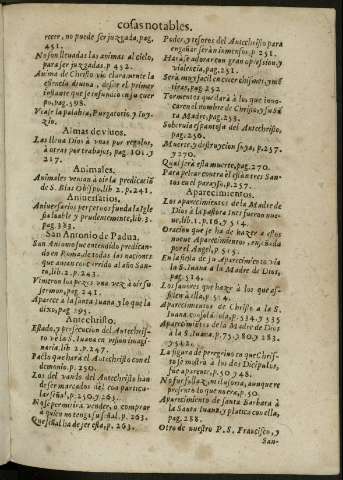 cosas notables.
recer, no puede ser juzgada, pag.
451.
No son lleuadas las animas al cielo,
para ser juzgadas. p. 452.
Anima de Christo vio claramente la
essencia diuina, desde el primer
instante que se infundio in su cuer
po, pag. 598.
Vease la palabra, Purgatorio, y Iuy-
zio.
Almas de viuos.
Las llena Dios a vnas por regalos,
à otras por trabajos, pag. 101. y
217.
Animales.
Animales venian à oir la predicaciõ
de S. Blas Obispo, lib 2. p. 241.
Aniuersarios.
Aniuersarios perpetuos funda la Igle
sia loable y prudentemente, lib. 3.
pag. 383.
San Antonio de Padua.
San Antonio fue entendido predican-
do en Roma, de todas las naciones
que auian concurrido al año San-
to, lib 2. p. 243.
Vinieron los pezes vna vez à oir su
sermon, pag. 241.
Aparece a la santa Iuana y lo que la
dixo, pag. 295.
Antechristo.
Estado, y persecucion del Antechris-
to ve la S. Iuana en vision imagi-
naria. lib 2. p. 247.
Pacto que harà el Antechristo con el
demonio. p. 250.
Los del vando del Antechristo han
de ser marcados del con particu-
lar señal, p. 250. y 263.
No se permitira vender, o comprar
à quien no tenga su señal. p. 263.
Que señal ha de ser esta, p. 263.
Poder, y tesoros del Antechristo para
engañar seràn inmensos. p. 251.
Harà se adorar con gran opression, y
violencia, pag. 251.
Serà muy facil en creer chismes, y mẽ
tiras, pag. 252
Tormentos que darà à los que inuo-
caren el nombre de Christo, y su Sã
ta Madre, pag. 253.
Soberuia espantosa del Antechristo,
pag. 256.
Muerte, y destruycion suya, p. 257.
y 270.
Qual serà esta muerte, pag. 270.
Para pelear contra èl estàn tres San-
tos en el parayso, p. 257.
Aparecimientos.
Los aparecimientos de la Madre de
Dios à la pastora Ines fueron nue-
ue, lib. 1. p. 16. y 514.
Oracion que se ha de hazer a estos
nueue Aparecimientos, enseñada
por el Angel, p. 515.
En la fiesta de su Aparecimiento via
la S. Iuana à la Madre de Dios,
pag. 514.
Los fauores que hazẽ à los que as-
sisten à ella, p. 514.
Aparecimientos de Christo a la S.
Iuana consolandola, p. 534. y 535
Aparecimientos de la Madre de Dios
à la S. Iuana, p. 75. y 80. y 283.
y 542.
La figura de peregrino en que Chris-
to se mostrò à los dos Dicipulos,
fue aparente, p. 50. y 48.
No fue falsa, ni engañosa, aunque re
presentò lo que no era, p. 50.
Aparecimiento de santa Barbara à
la Santa Iuana, y platica con ella,
pag. 288.
Otro de nuestro P. S. Francisco, y
San-